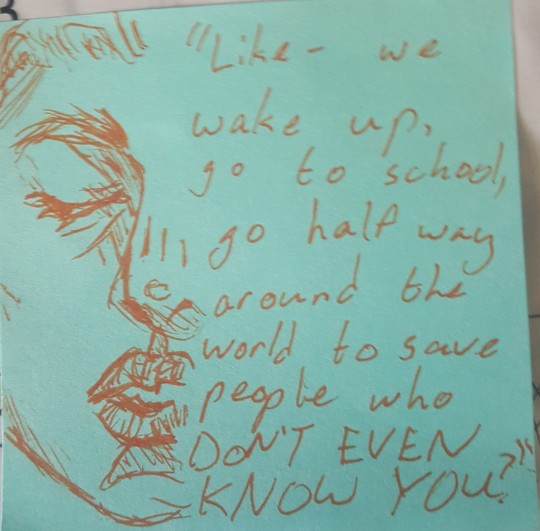 "Like - we
wake up,
go to school,
go half way
around the
world to save
people who
DON'T EVEN
KNOW YOU?"